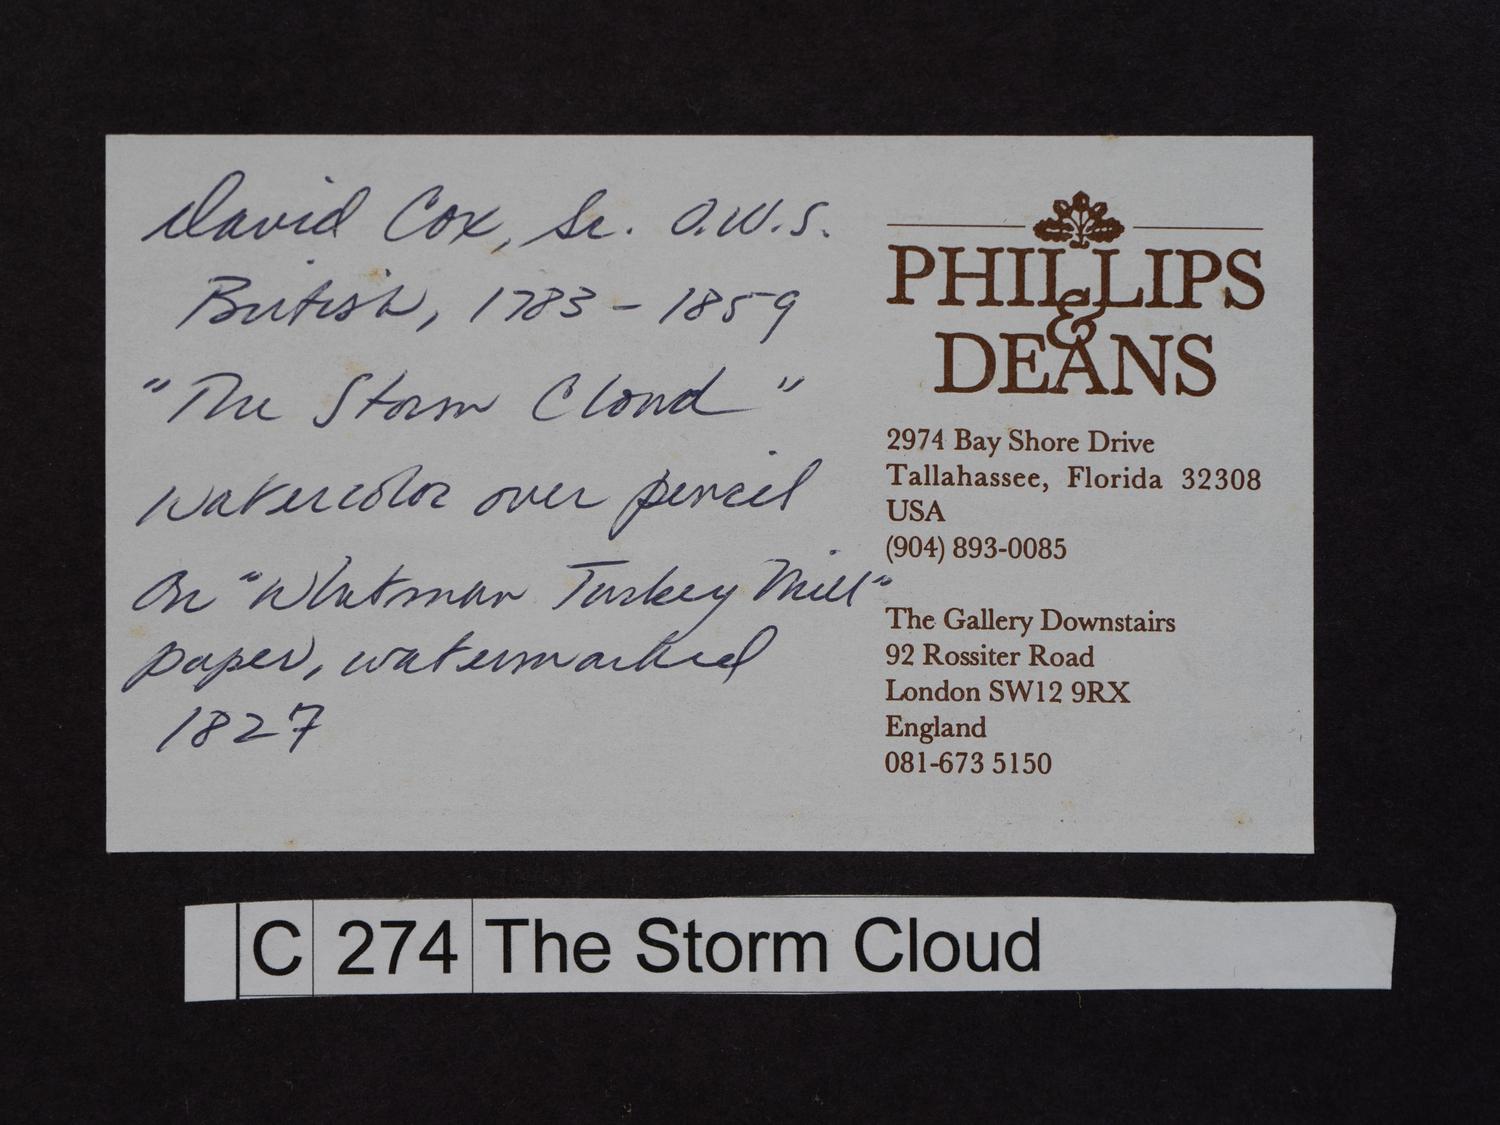 David Cox, Sr. O.W.S.
British, 1783 - 1859
"The Storm Cloud"
watercolor over pencil
on "Whatman Turkey Mill"
paper, watermarked
1827
PHILLIPS
&
DEANS
2974 Bay Shore Drive
Tallahassee, Florida 32308
USA
(904) 893-0085
The Gallery Downstairs
92 Rossiter Road
London SW12 9RX
England
081-673 5150
C 274 The Storm Cloud